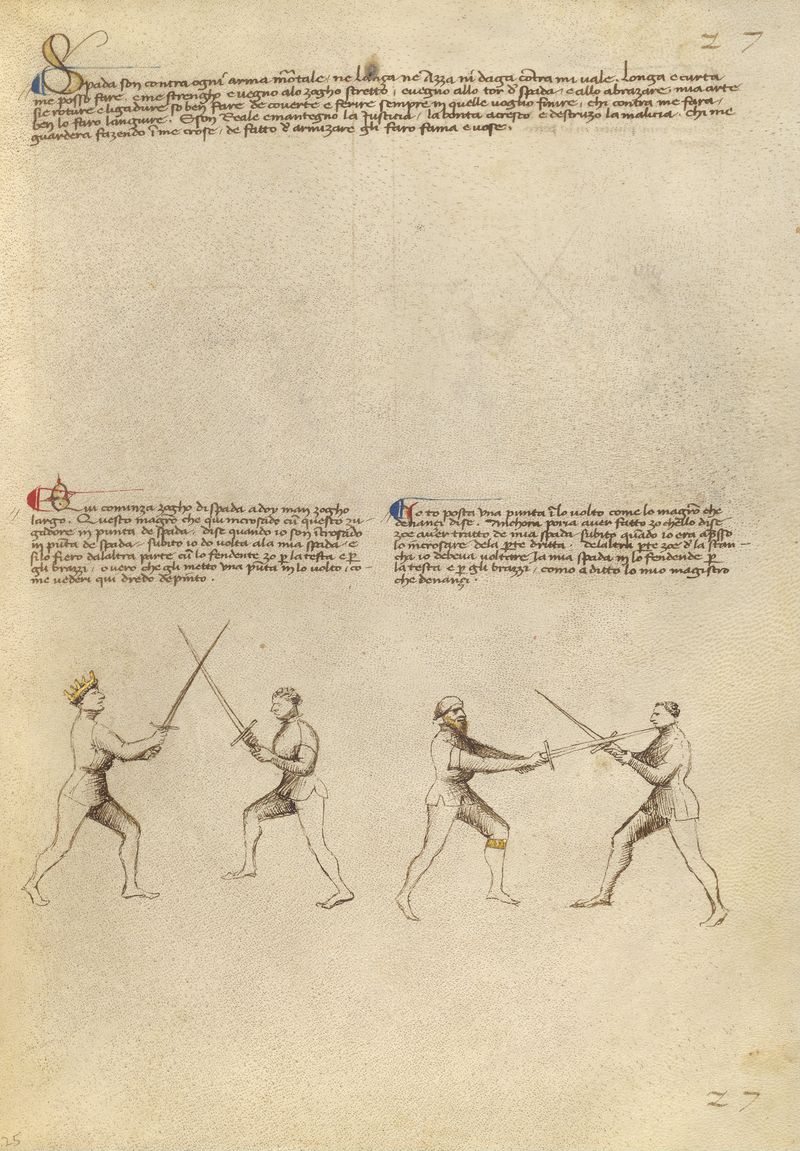 27
Spada son contra ogni arma mortale / ne lança ne Azza ni daga contra mi vale. Longa e curta
me posso fare e me strengho e vegno alo zogho stretto, e vegno allo tor d'spada, e allo abrazare, mia arte
sie roture e ligadure so ben fare de coverte e ferire sempre in quelle voglio finire, chi contra me fara
ben lo faro languire. E son Reale e mantegno la Justicia, la bonta acresco e destruzo la malicia. Chi me
guardera fazendo i me crose, de fatto d'armizare gli faro fama e vose.
Qui cominza zogho di spada a doy man zogho
largo. Questo magro che qui incrosado cum questo zu-
gadore in punta de spada, dise quando io son incrosado
in punta de spada, subito io do volta ala mia spada, e
si lo fiero dalaltra parte cum lo fendente zo per la testa e per
gli brazzi, overo che gli metto una punta in lo volto, co-
me vederi qui dredo depinto.
Io to posta una punta i lo volto come lo magro che
denançi dise. Anchora poria aver fatto zo ch'ello dise
zoe aver tratto de mia spada subito quado io era apsso
lo incrosare dela pte dritta. Delaltra pte zoe d'la stan-
cha io deveva voltare la mia spada in lo fendende p
la testa e p gli brazzi, como a ditto lo mio magistro
che denançi.
27
25